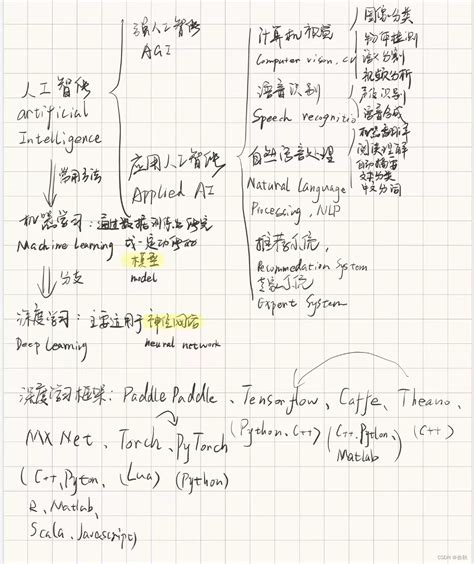 强人工智能
AGI
人工智能
artificial
Intelligence
应用人工智能
Applied AI
计算机视觉
Computer vison, cv
图像分类
物体检测
语义分割
视频分析
语音识别
Speech recognition
声纹识别
语音合成
自然语言处理
Natural Language
Processing, NLP
机器翻译
阅读理解
自动摘要
文本分类
中文分词
推荐系统,
Recommedation System
专家系统
Expert System
常用方法
机器学习:通过数据训练出能完
Machine Learning 成一定功能的
模型
model
分支
深度学习:主要运用于神经网络
Deep Learning neural network
深度学习框架:Paddle Paddle、Tensorflow、Caffe、Theano、
(Python、C++) (C++、Python、 (C++)
Matlab)
MXNet、Torch、PyTorch
(C++、Pyton、 (Lua) (Python)
R、Matlab、
Scala、Javascript)